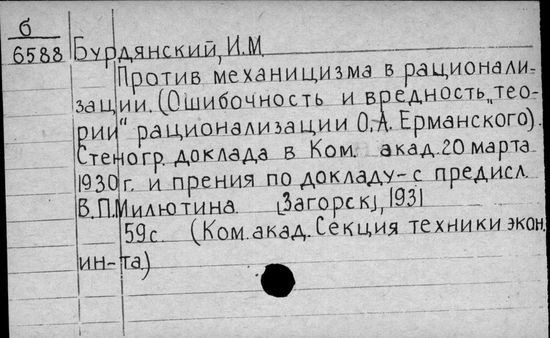 б
6588
Бурдянский, И.М.
Против механицизма в рационали-
зации. (Ошибочность и вредность „тео-
рии" рационализации О.А. Ерманского).
Стеногр. доклада в Ком. акад. 20 марта
1930 г. и прения по докладу - с предисл.
В.П. Милютина. [Загорск], 1931
59 с. (Ком. акад. Секция техники экон.
ин-та.)